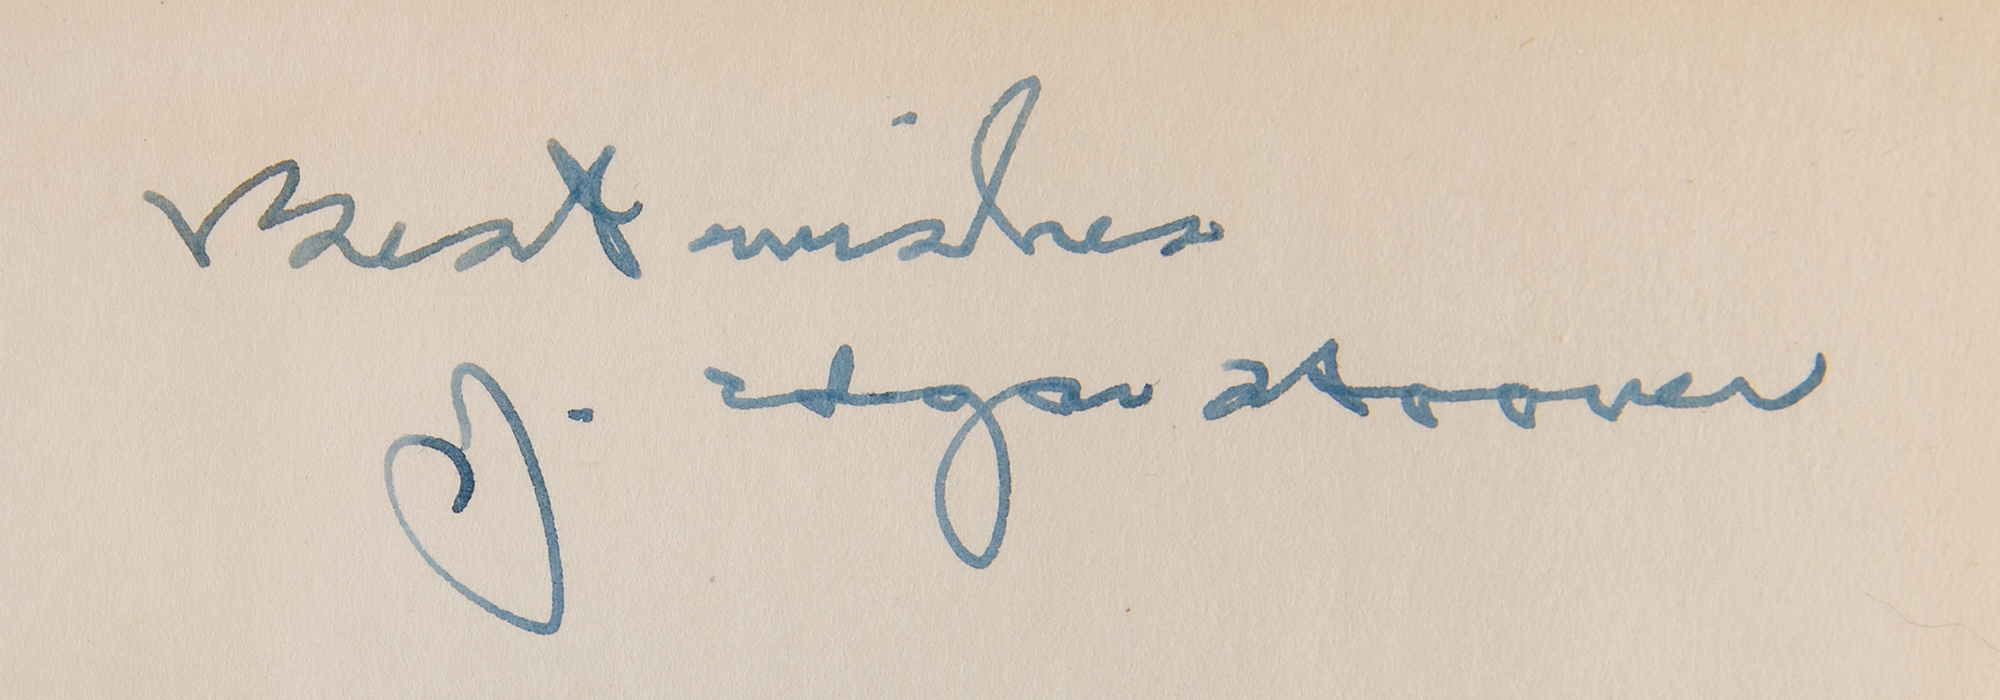 Best wishes
J. Edgar Hoover